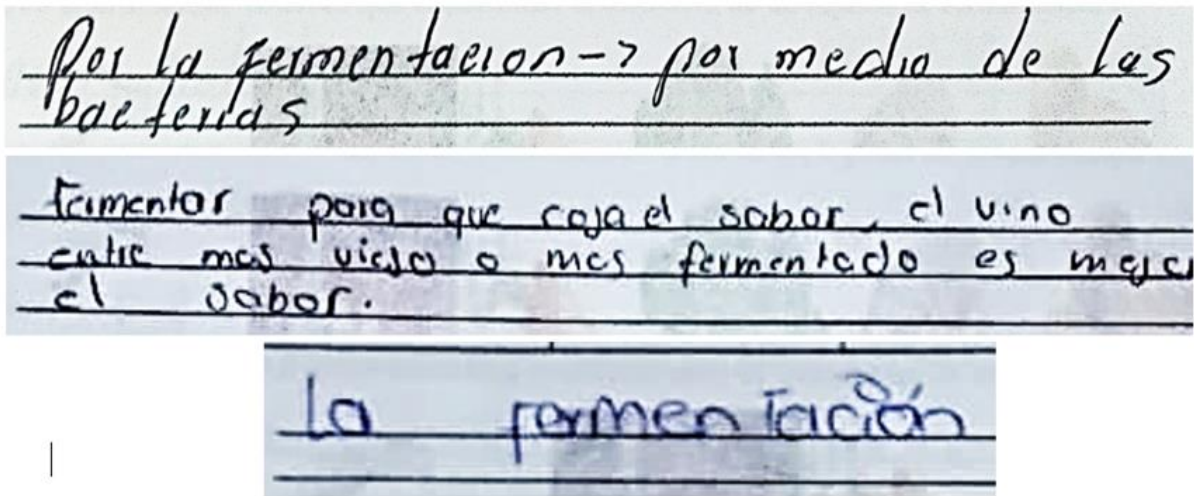 Por la fermentacion -> por medio de las
bacterias
fermentar para que coja el sabor, el vino
entre mas viejo o mas fermentado es mejor
el sabor.
La fermentación